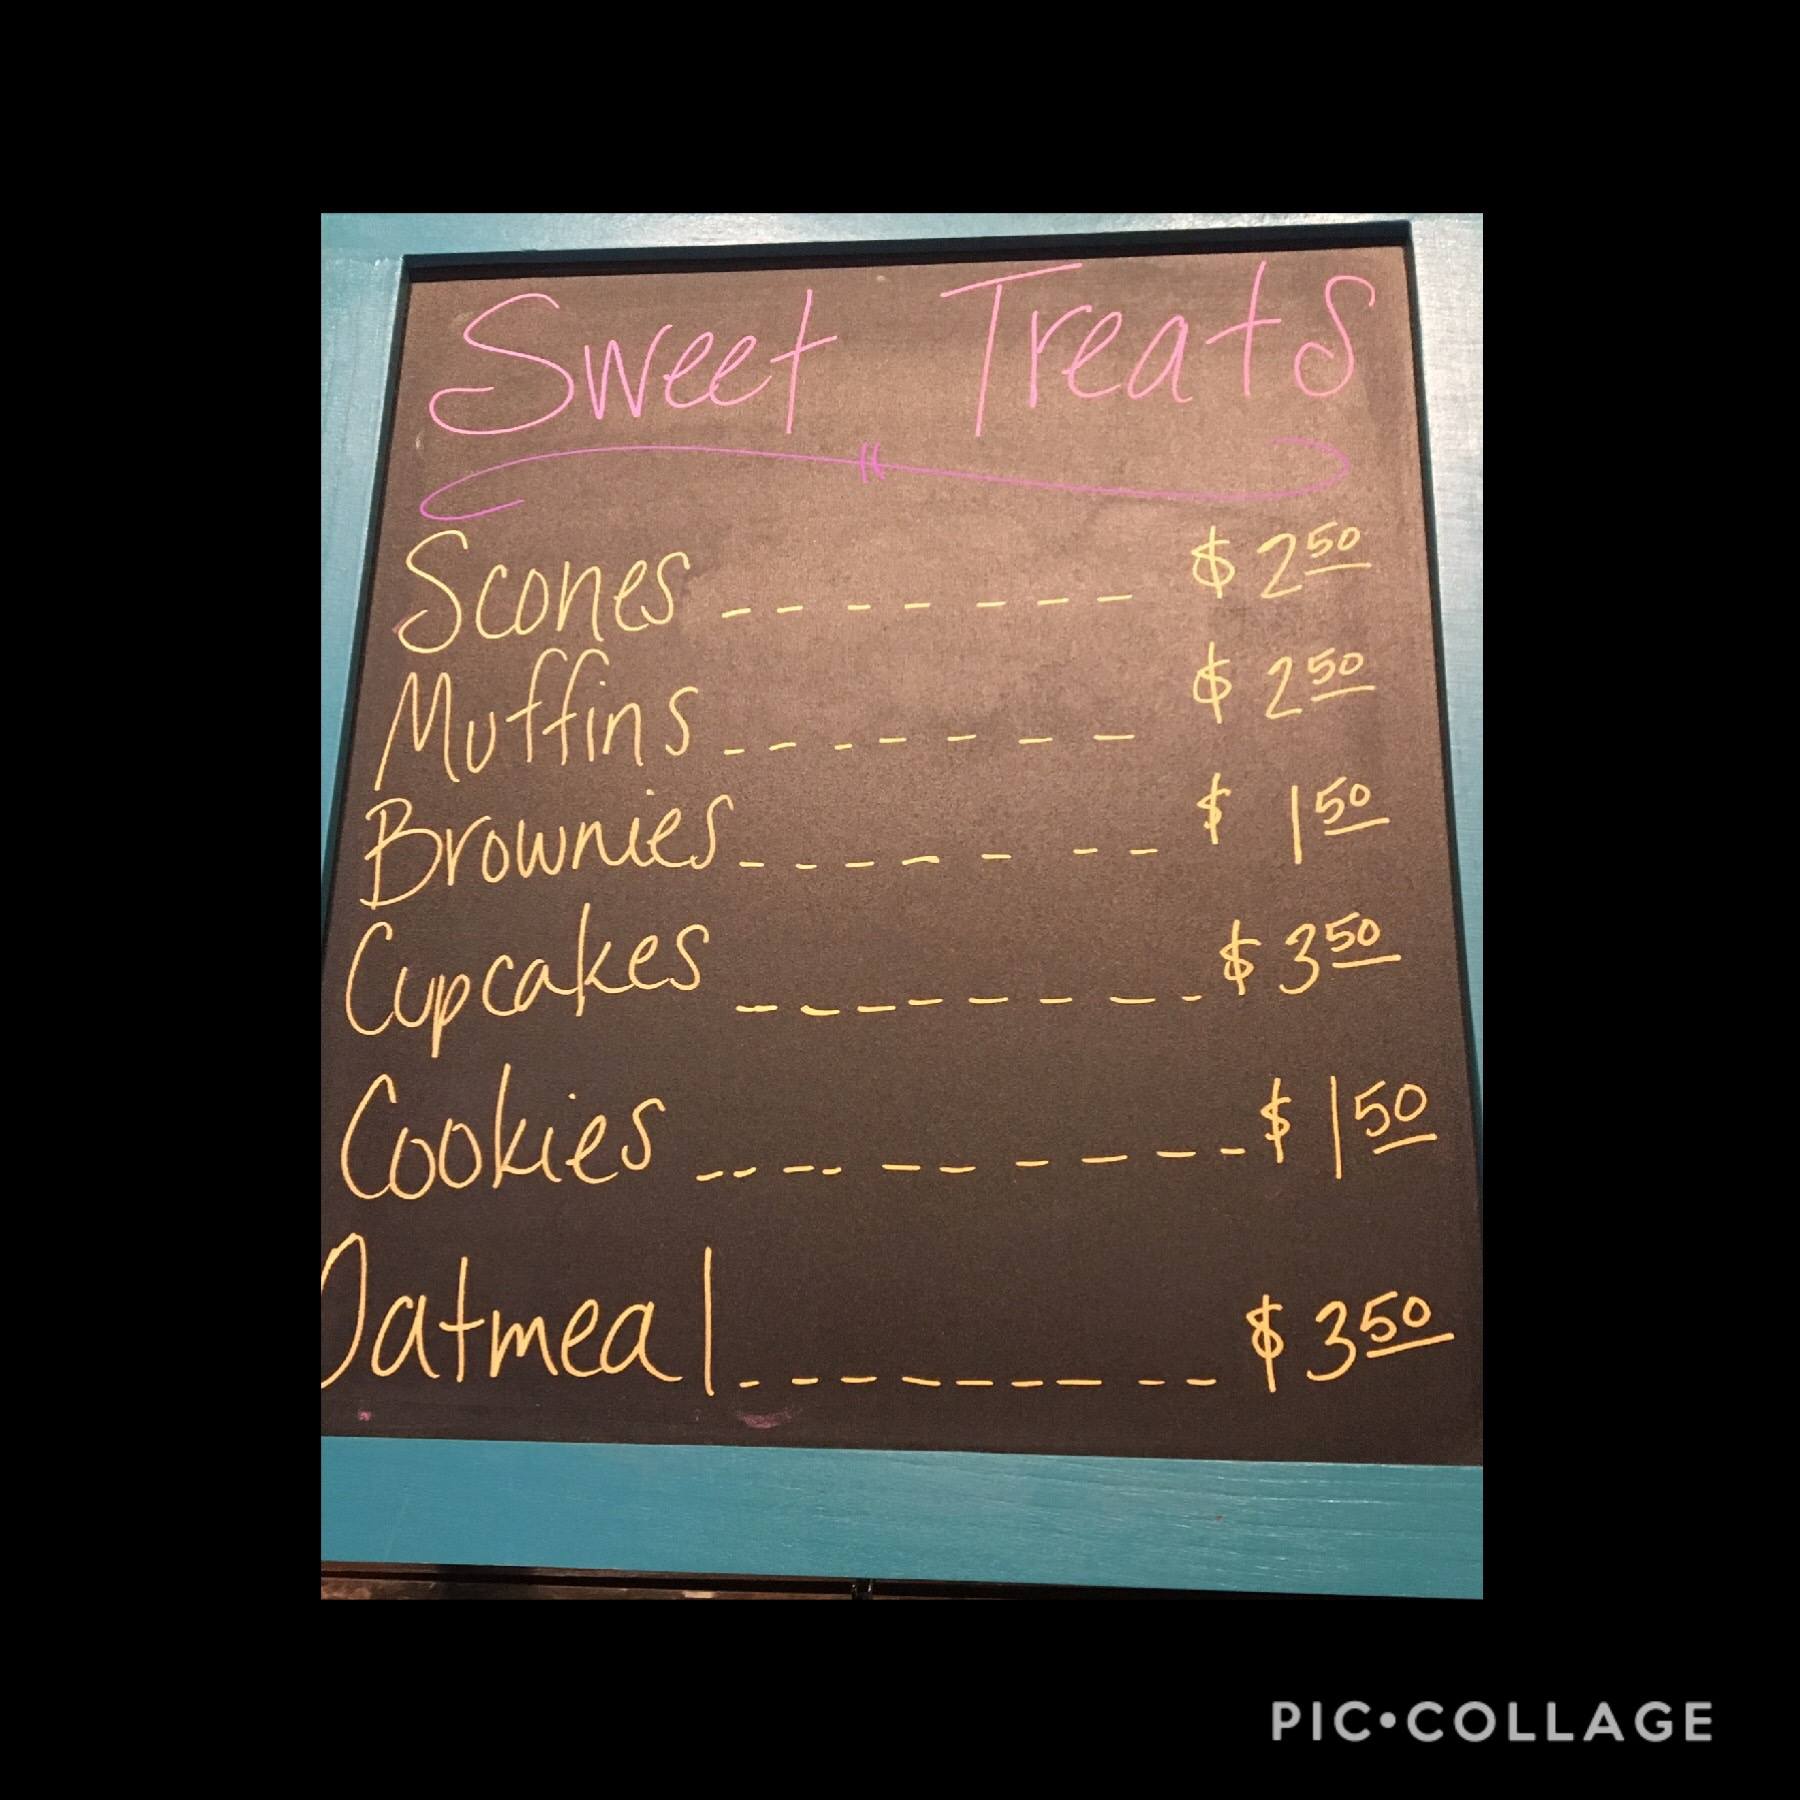 Sweet Treats
Scones ------- $ 2 50
Muffins ------- $ 2 50
Brownies ------- $ 1 50
Cupcakes -------- $ 3 50
Cookies ---------- $ 1 50
Oatmeal --------- $ 3 50
PIC•COLLAGE